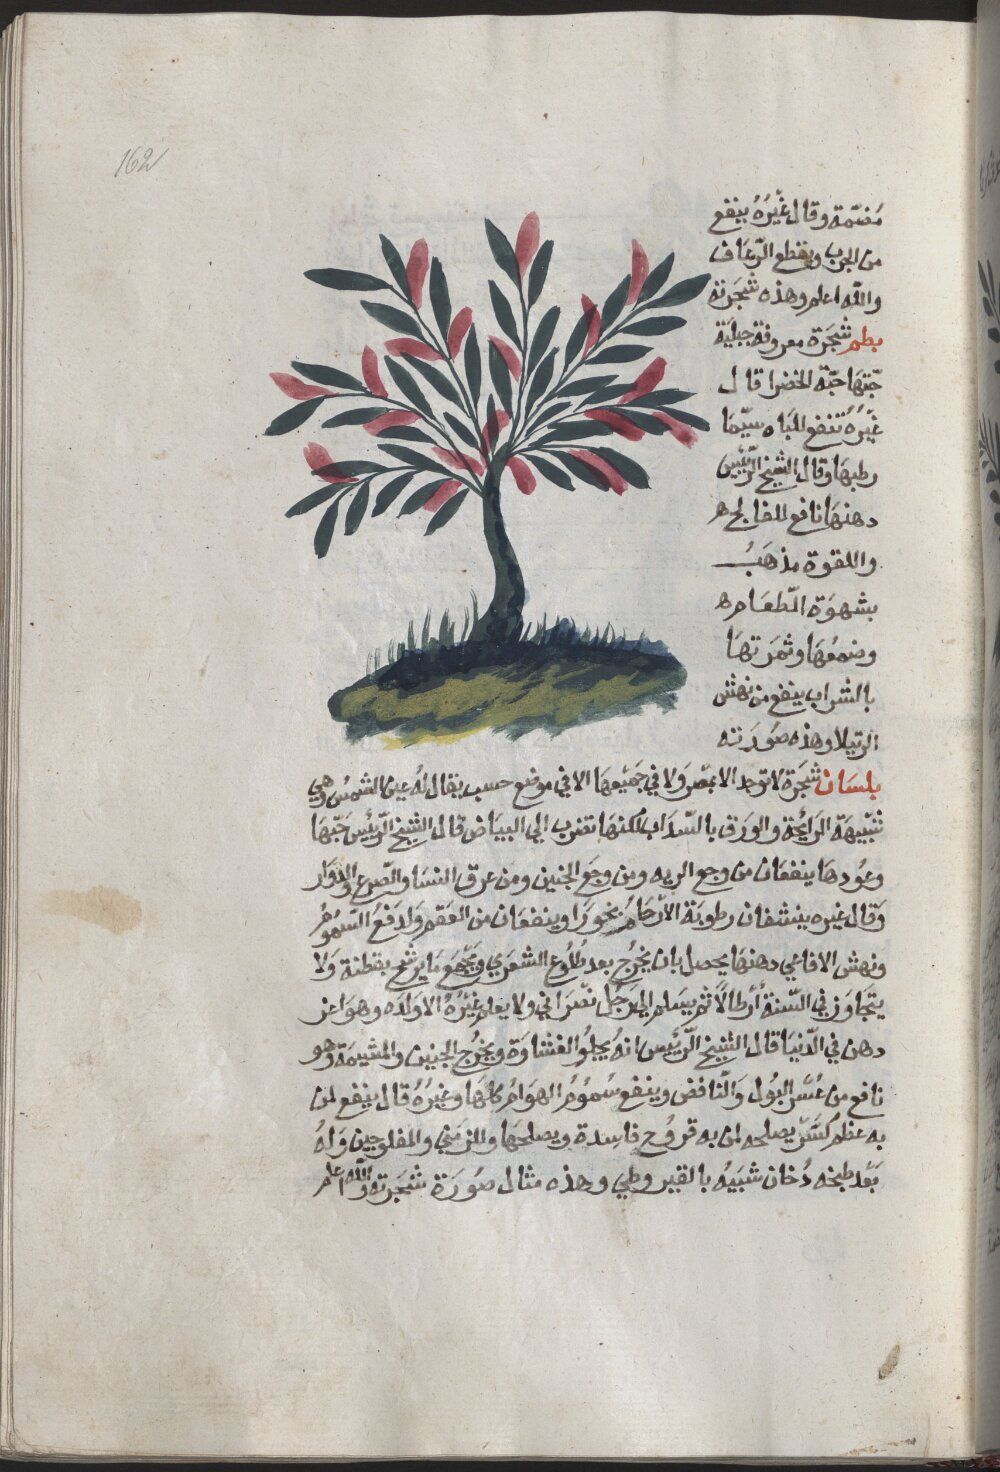 162
مضمّة وقال غيْرُهُ ينفع
من الجرب ويقطع الرّعاف
والله اعلم وهذه شجَرته
بطم شجَرة معروفة جبليّة
حّبتهَا حبّة الخضرا قال
غيْرُهُ تنفع للبَاه سيّمَا
رطبهَا وقال الشيخ الرّئيس
دهنهَا نافع للفالج
واللقوة مذهَبُ
بشهوَة الطّعَام
وضمغهَا وثمرَتهَا
بالشراب ينفع من نهش
الرتيلا وهذه صُورَته
بلسَان شجَرة لا توجد الا بمصْر وَلا في جَميْعهَا الا في موضع حسب يقال لهُ عين الشمس وهي
شبيهَة الرَايْحة والورَق بالسّدَاب لكنهَا تضرب الي البيَاض قال الشيخ الرّئيس حَبّهَا
وعُودهَا ينفعَان من وجع الريه ومن وجَع الجنبين ومن عرق النسَا والصّرع والدوَار
وَقال غيره ينشفان رطوبَة الارْحَام بخورًا وينفعَان من العَقم وَادفعُ السّمُوم
ونهش الافاعي دهنهَا يحصل بان يخرُج بعد طلُوع الشعرَي ويجْمَع مَا يرشح بقطنة وَلا
يتجَاوَز في السّنة أرطالًا ثم يسَلم الي رَجُل نصْرَاني ولا يعلم غيْرُهُ الا ولدَه وهوَ اعز
دهن في الدّنيَا قال الشيخ الرّئيس انهُ يجلو الغشاوَة ويخْرُج الجنين والمشيمَة وهو
نافع من عُسْر البُول وَالنّافض وينفع سُمُومُ الهوَامُ كلهَا وغيْرُهُ قال ينفع لمن
به عظم كسْرْ يصلحه لمن به قروُح فاسِدة ويصلحهَا وللزمني والمفلوجين وَلهُ
بَعْد طبخه دُخان شبَيهُ بالقير وطي وهذه مثال صُورَة شجَرته والله اعلم